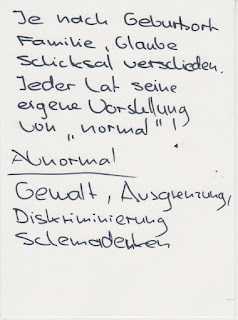 Je nach Geburtsort
Familie, Glaube
Schicksal verschieden.
Jeder hat seine
eigene Vorstellung
von „normal"!
Abnormal
Gewalt, Ausgrenzung,
Diskriminierung
Schemadenken